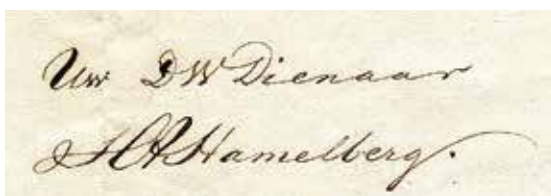 Uw DW Dienaar
HA Hamelberg.